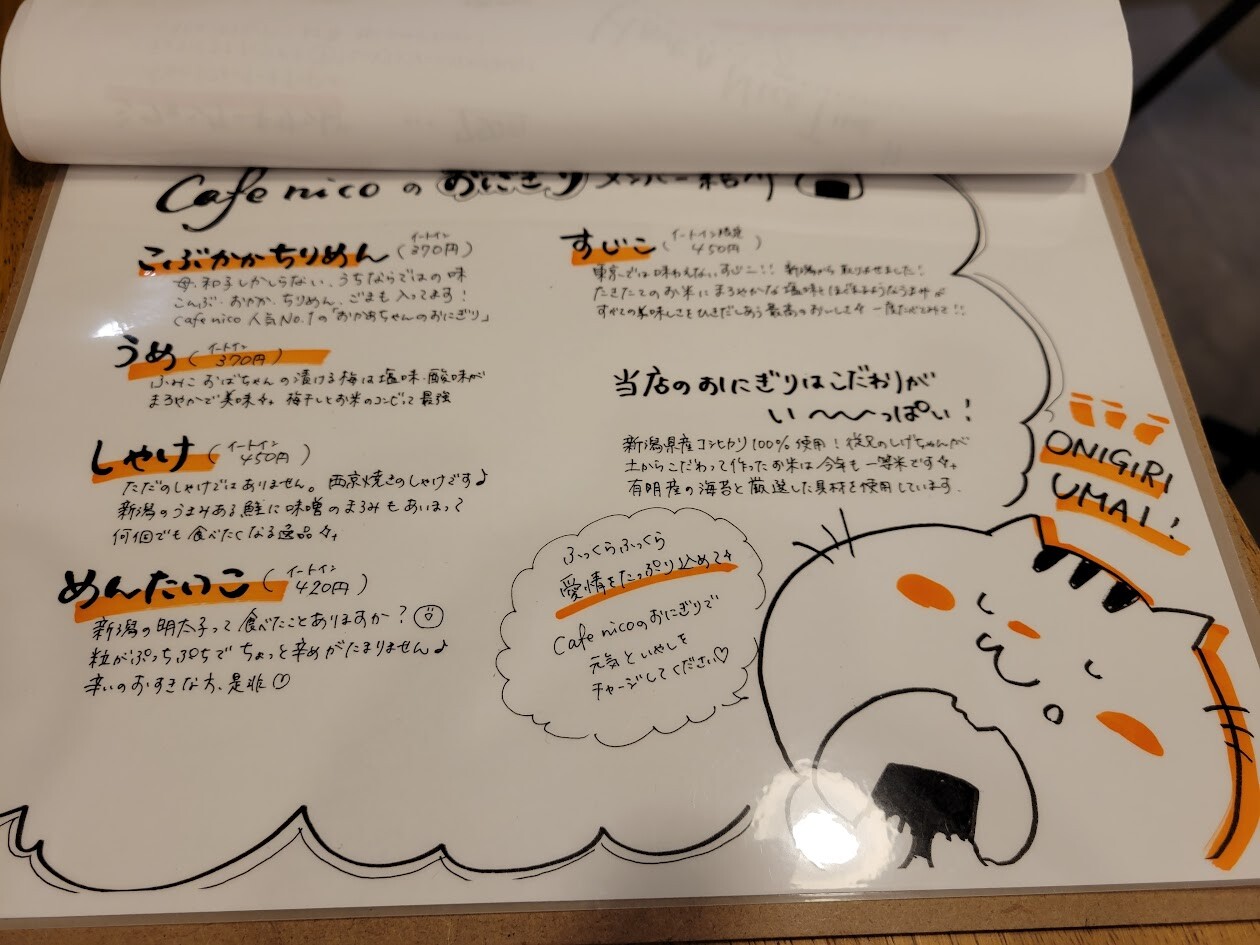 Cafe nico の おにぎり メンバー紹介
こぶかかちりめん (イートイン 370円)
母、和子しかしらない、うちならではの味
こんぶ・おかか・ちりめん、ごまも入ってます!
Cafe nico 人気No.1の「おかあちゃんのおにぎり」
うめ (イートイン 370円)
ふみこおばちゃんの漬ける梅は塩味・酸味が
まろやかで美味 梅干しとお米のコンビって最強
しゃけ (イートイン 450円)
ただのしゃけではありません。西京焼きのしゃけです♪
新潟のうまみある鮭に味噌のまろみもあいまって
何個でも食べたくなる逸品
めんたいこ (イートイン 420円)
新潟の明太子って食べたことありますか?
粒がぷちぷちでちょっと辛めがたまりません♪
辛いのおすきな方、是非
すじこ (イートイン限定 450円)
東京では味わえないすじこ!! 新潟から取りよせました!
たきたてのお米にまろやかな塩味とほどけるようなうまみ
すべての美味しさをひきだしあう最高のおいしさ 一度たべてみて!!
当店のおにぎりはこだわりが
い〜〜〜っぱい!
新潟県産コシヒカリ100%使用!従兄のしげちゃんが
土からこだわって作ったお米は今年も一等米です
有明産の海苔と厳選した具材を使用しています。
ふっくらふっくら
愛情をたっぷり込めて
Cafe nicoのおにぎりで
元気といやしを
チャージしてください♡
ONIGIRI
UMAI!